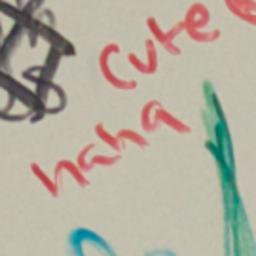 Cute
haha